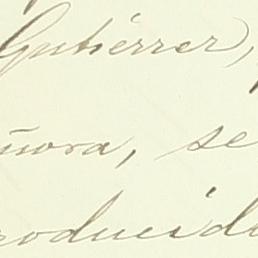 Gutiérrez,
ñora, se
roducid